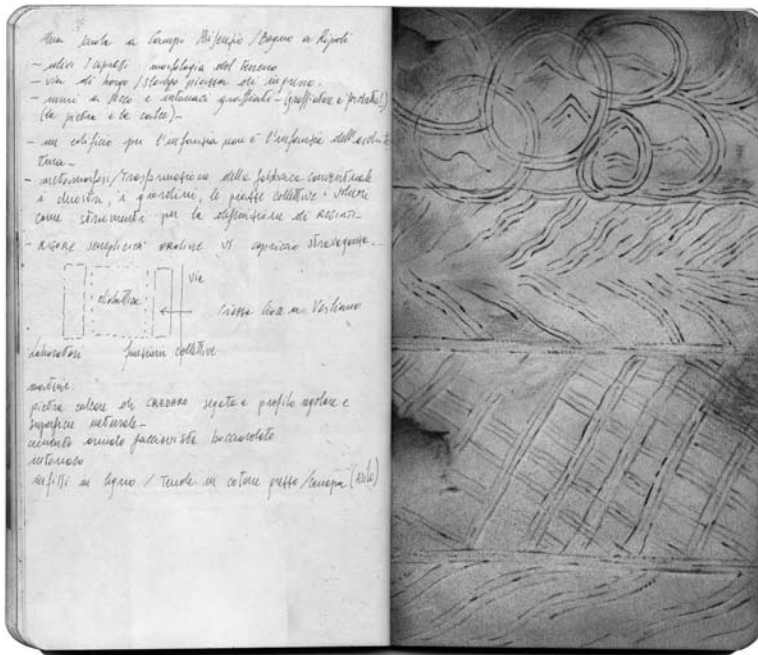 Una scuola a Campi Bisenzio / Bagno a Ripoli
- ulivi / cipressi morfologia del terreno
- via di borgo / slargo piazza di ingresso -
- muri a secco e intonaci graffiati - (graffiatore è proibito!)
(la pietra e la calce) -
- un edificio per l'infanzia non è l'infanzia dell'architet
tura -
- metamorfosi / trasformazione della fabbrica conventuale
i chiostri, i giardini, le piazze collettive
come strumenti per la definizione di
- RIGORE SEMPLICITÀ ORDINE VS capriccio stravaganza -
didattica
via
laboratori funzioni collettive
materie:
pietra calcare di segata a profilo regolare e
superficie naturale -
cemento armato facciavista bocciardato
intonaco
infissi in legno / Tende in cotone grezzo / canapa